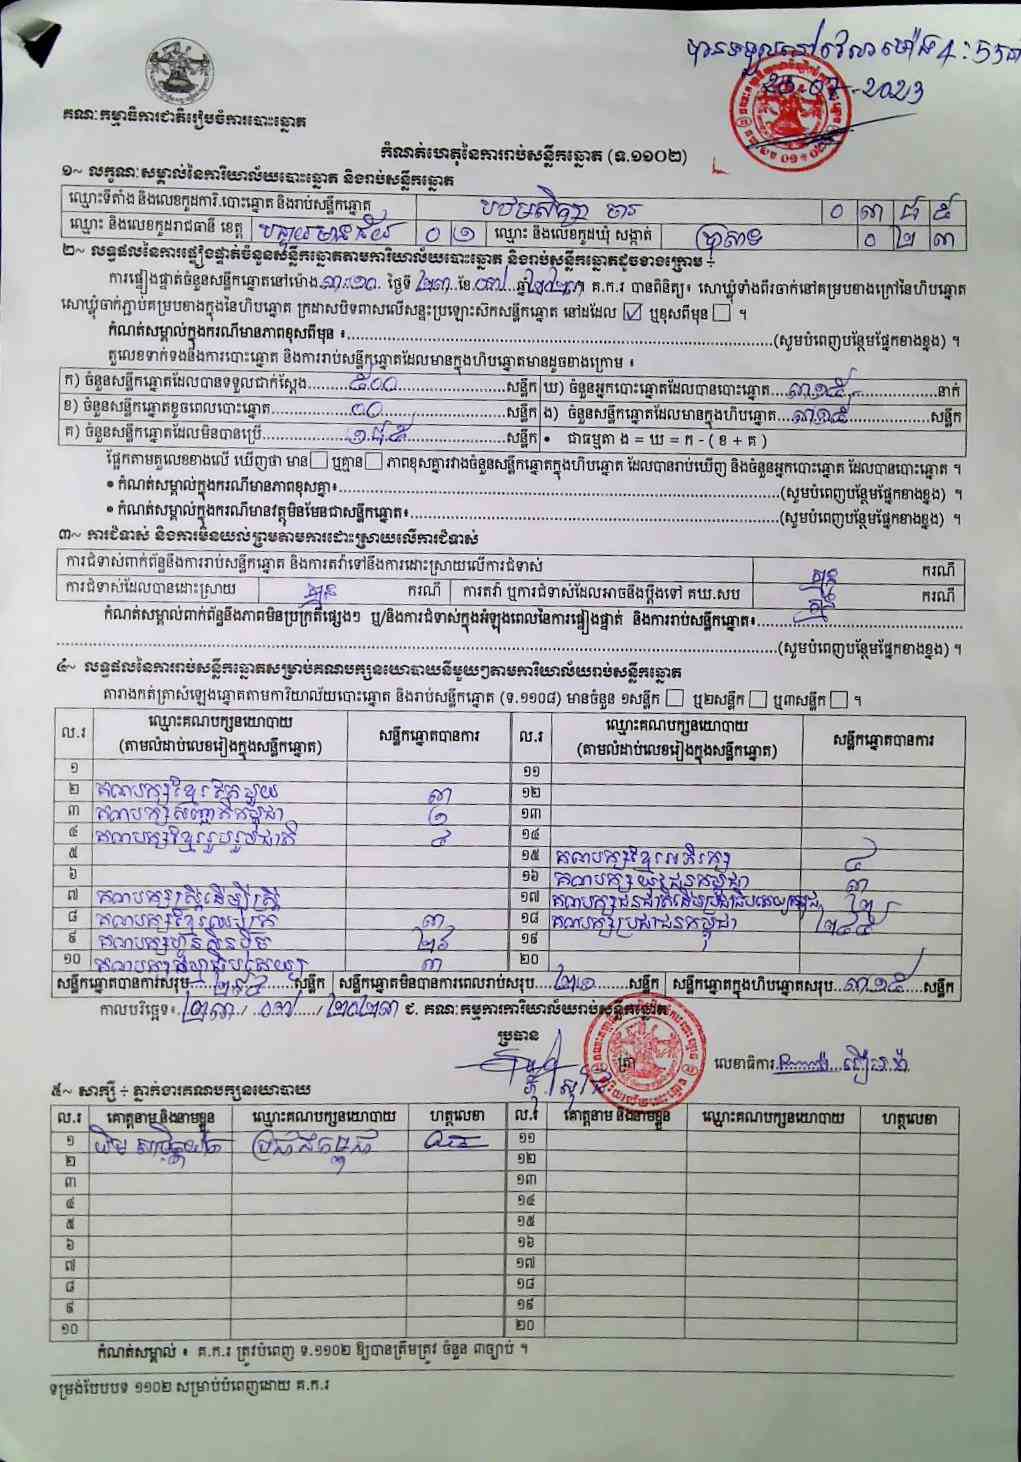 បានទទួលនៅវេលាម៉ោង 4:55នាទី
23-07-2023
គណៈកម្មាធិការជាតិរៀបចំការបោះឆ្នោត
កំណត់ហេតុនៃការរាប់សន្លឹកឆ្នោត (ទ.១១០២)
១~ លក្ខណៈសម្គាល់នៃការិយាល័យបោះឆ្នោត និងរាប់សន្លឹកឆ្នោត
ឈ្មោះទីតាំង និងលេខកូដការិ.បោះឆ្នោត និងរាប់សន្លឹកឆ្នោត បឋមសិក្សា ០ ៣ ៨ ៥
ឈ្មោះ និងលេខកូដរាជធានី ខេត្ត បន្ទាយមានជ័យ ០ ១ ឈ្មោះ និងលេខកូដឃុំ សង្កាត់ ០ ២ ៣
២~ លទ្ធផលនៃការផ្ទៀងផ្ទាត់ចំនួនសន្លឹកឆ្នោតតាមការិយាល័យបោះឆ្នោត និងរាប់សន្លឹកឆ្នោតដូចខាងក្រោម ÷
ការផ្ទៀងផ្ទាត់ចំនួនសន្លឹកឆ្នោតនៅម៉ោង ៣:១០ ថ្ងៃទី ២៣ ខែ ០៧ ឆ្នាំ ២០២៣ គ.ក.រ បានពិនិត្យ៖ សោឃ្លុំទាំងពីរចាក់នៅគម្របខាងក្រៅនៃហិបឆ្នោត
សោឃ្លុំចាក់ភ្ជាប់គម្របខាងក្នុងនៃហិបឆ្នោត ក្រដាសបិទពាសលើសន្ទះប្រឡោះស៊កសន្លឹកឆ្នោត នៅដដែល ☑ ឬខុសពីមុន ☐ ។
កំណត់សម្គាល់ក្នុងករណីមានភាពខុសពីមុន ៖ (សូមបំពេញបន្ថែមផ្នែកខាងខ្នង) ។
តួលេខទាក់ទងនឹងការបោះឆ្នោត និងការរាប់សន្លឹកឆ្នោតដែលមានក្នុងហិបឆ្នោតមានដូចខាងក្រោម ៖
ក) ចំនួនសន្លឹកឆ្នោតដែលបានទទួលជាក់ស្តែង ៥០០ សន្លឹក ឃ) ចំនួនអ្នកបោះឆ្នោតដែលបានបោះឆ្នោត ៣១៥ នាក់
ខ) ចំនួនសន្លឹកឆ្នោតខូចពេលបោះឆ្នោត ០០ សន្លឹក ង) ចំនួនសន្លឹកឆ្នោតដែលមានក្នុងហិបឆ្នោត ៣១៥ សន្លឹក
គ) ចំនួនសន្លឹកឆ្នោតដែលមិនបានប្រើ ១៨៥ សន្លឹក • ជាធម្មតា ង = ឃ = ក - ( ខ + គ )
ផ្អែកតាមតួលេខខាងលើ ឃើញថា មាន ☐ ឬគ្មាន ☐ ភាពខុសគ្នារវាងចំនួនសន្លឹកឆ្នោតក្នុងហិបឆ្នោត ដែលបានរាប់ឃើញ និងចំនួនអ្នកបោះឆ្នោត ដែលបានបោះឆ្នោត ។
• កំណត់សម្គាល់ក្នុងករណីមានភាពខុសគ្នា៖ (សូមបំពេញបន្ថែមផ្នែកខាងខ្នង) ។
• កំណត់សម្គាល់ក្នុងករណីមានវត្ថុមិនមែនជាសន្លឹកឆ្នោត៖ (សូមបំពេញបន្ថែមផ្នែកខាងខ្នង) ។
៣~ ការជំទាស់ និងការមិនយល់ព្រមតាមការដោះស្រាយលើការជំទាស់
ការជំទាស់ពាក់ព័ន្ធនឹងការរាប់សន្លឹកឆ្នោត និងការតវ៉ាទៅនឹងការដោះស្រាយលើការជំទាស់ គ្មាន ករណី
ការជំទាស់ដែលបានដោះស្រាយ គ្មាន ករណី ការតវ៉ា ឬការជំទាស់ដែលអាចនឹងប្តឹងទៅ គឃ.សប គ្មាន ករណី
កំណត់សម្គាល់ពាក់ព័ន្ធនឹងភាពមិនប្រក្រតីផ្សេងៗ ឬ/និងការជំទាស់ក្នុងអំឡុងពេលនៃការផ្ទៀងផ្ទាត់ និងការរាប់សន្លឹកឆ្នោត៖
(សូមបំពេញបន្ថែមផ្នែកខាងខ្នង) ។
៤~ លទ្ធផលនៃការរាប់សន្លឹកឆ្នោតសម្រាប់គណបក្សនយោបាយនីមួយៗតាមការិយាល័យរាប់សន្លឹកឆ្នោត
តារាងកត់ត្រាសំឡេងឆ្នោតតាមការិយាល័យបោះឆ្នោត និងរាប់សន្លឹកឆ្នោត (ទ.១១០៨) មានចំនួន ១សន្លឹក ☐ ឬ២សន្លឹក ☐ ឬ៣សន្លឹក ☐ ។
ល.រ ឈ្មោះគណបក្សនយោបាយ (តាមលំដាប់លេខរៀងក្នុងសន្លឹកឆ្នោត) សន្លឹកឆ្នោតបានការ ល.រ ឈ្មោះគណបក្សនយោបាយ (តាមលំដាប់លេខរៀងក្នុងសន្លឹកឆ្នោត) សន្លឹកឆ្នោតបានការ
១ ១១
២ គណបក្សខ្មែរតែមួយ ៣ ១២
៣ គណបក្សសញ្ជាតិកម្ពុជា ១ ១៣
៤ គណបក្សខ្មែររួបរួមជាតិ ៤ ១៤
៥ ១៥ គណបក្សខ្មែរអភិរក្ស ៤
៦ ១៦ គណបក្សយុវជនកម្ពុជា ៣
៧ គណបក្សស្ត្រីដើម្បីស្ត្រី ១៧ គណបក្សជនជាតិដើមប្រជាធិបតេយ្យកម្ពុជា ២
៨ គណបក្សខ្មែរឈប់ក្រ ៣ ១៨ គណបក្សប្រជាជនកម្ពុជា ២៤៥
៩ គណបក្សហ៊្វុនស៊ិនប៉ិច ២៦ ១៩
១០ ៣ ២០
សន្លឹកឆ្នោតបានការសរុប ២៩៤ សន្លឹក សន្លឹកឆ្នោតមិនបានការពេលរាប់សរុប ២១ សន្លឹក សន្លឹកឆ្នោតក្នុងហិបឆ្នោតសរុប ៣១៥ សន្លឹក
កាលបរិច្ឆេទ៖ ២៣ / ០៧ / ២០២៣ ជ. គណៈកម្មការការិយាល័យរាប់សន្លឹកឆ្នោត
ប្រធាន
ត្រា លេខាធិការ
៥~ សាក្សី ÷ ភ្នាក់ងារគណបក្សនយោបាយ
ល.រ គោត្តនាម និងនាមខ្លួន ឈ្មោះគណបក្សនយោបាយ ហត្ថលេខា ល.រ គោត្តនាម និងនាមខ្លួន ឈ្មោះគណបក្សនយោបាយ ហត្ថលេខា
១ ប្រជាជនកម្ពុជា ១១
២ ១២
៣ ១៣
៤ ១៤
៥ ១៥
៦ ១៦
៧ ១៧
៨ ១៨
៩ ១៩
១០ ២០
កំណត់សម្គាល់ ៖ គ.ក.រ ត្រូវបំពេញ ទ.១១០២ ឱ្យបានត្រឹមត្រូវ ចំនួន ៣ច្បាប់ ។
ទម្រង់បែបបទ ១១០២ សម្រាប់បំពេញដោយ គ.ក.រ